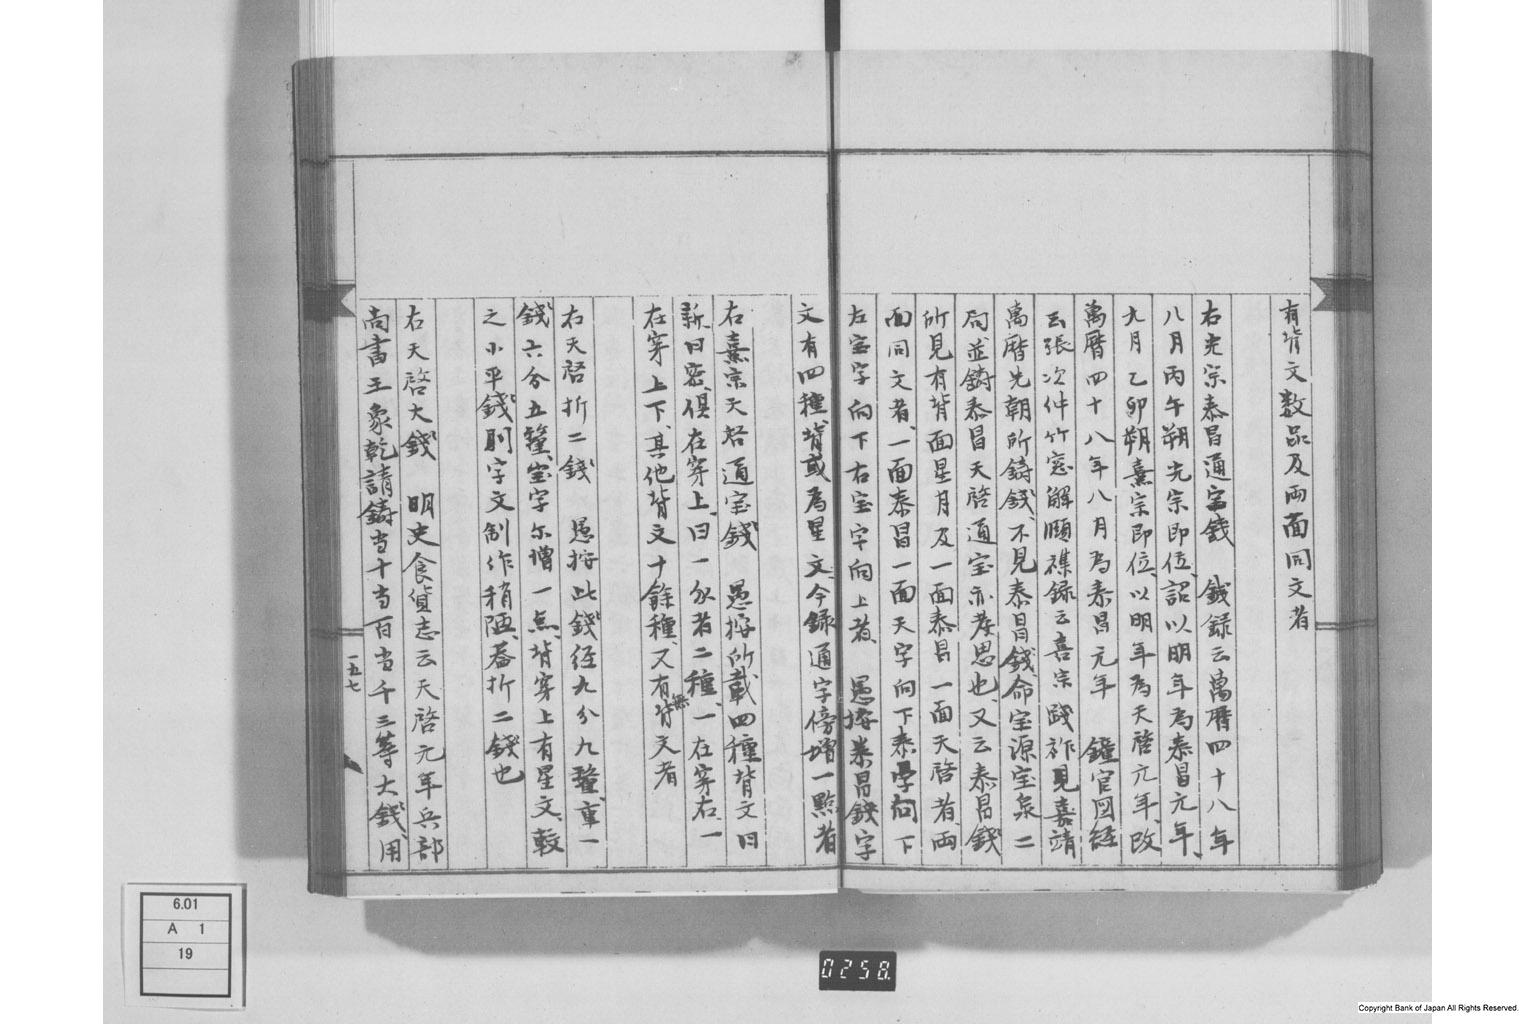 有背文数品及両面同文者
右光宗泰昌通宝錢　錢録云萬曆四十八年
八月丙午朔光宗即位、詔以明年為泰昌元年、
九月乙卯朔熹宗即位、以明年為天啓元年、改
萬曆四十八年八月為泰昌元年　鐘官図経
云張次仲竹窓解頤襍録云喜宗踐祚見嘉靖
萬曆先朝所鋳錢、不見泰昌錢、命宝源宝泉二
局並鋳泰昌天啓通宝亦孝思也、又云泰昌錢
所見有背面星月及一面泰昌一面天啓者、両
面同文者、一面泰昌一面天字向下泰字向下
左宝字向下右宝字向上者、　愚按泰昌錢字
文有四種、背或為星文、今録通字傍増一點者
右熹宗天啓通宝錢　愚按所載四種背文曰
新、曰密、俱在穿上、曰一分者二種、一在穿右、一
在穿上下、其他背文十餘種、又有無背文者
右天啓折二錢　愚按此錢径九分九釐、重一
錢六分五釐、宝字尓増一点、背穿上有星文、較
之小平錢、則字文制作稍陋、蓋折二錢也
右天啓大錢　明史食貨志云天啓元年兵部
尚書王象乾請鋳当十当百当千三等大錢、用
一五七
6.01
A 1
19
0258.
Copyright Bank of Japan All Rights Reserved.